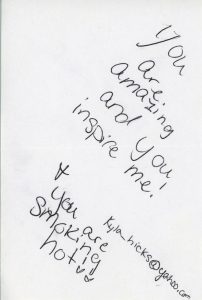 You
are
amazing
and you
inspire me!
♥ you
are
smoking
hot! ♥♥
kyla_hicks@yahoo.com